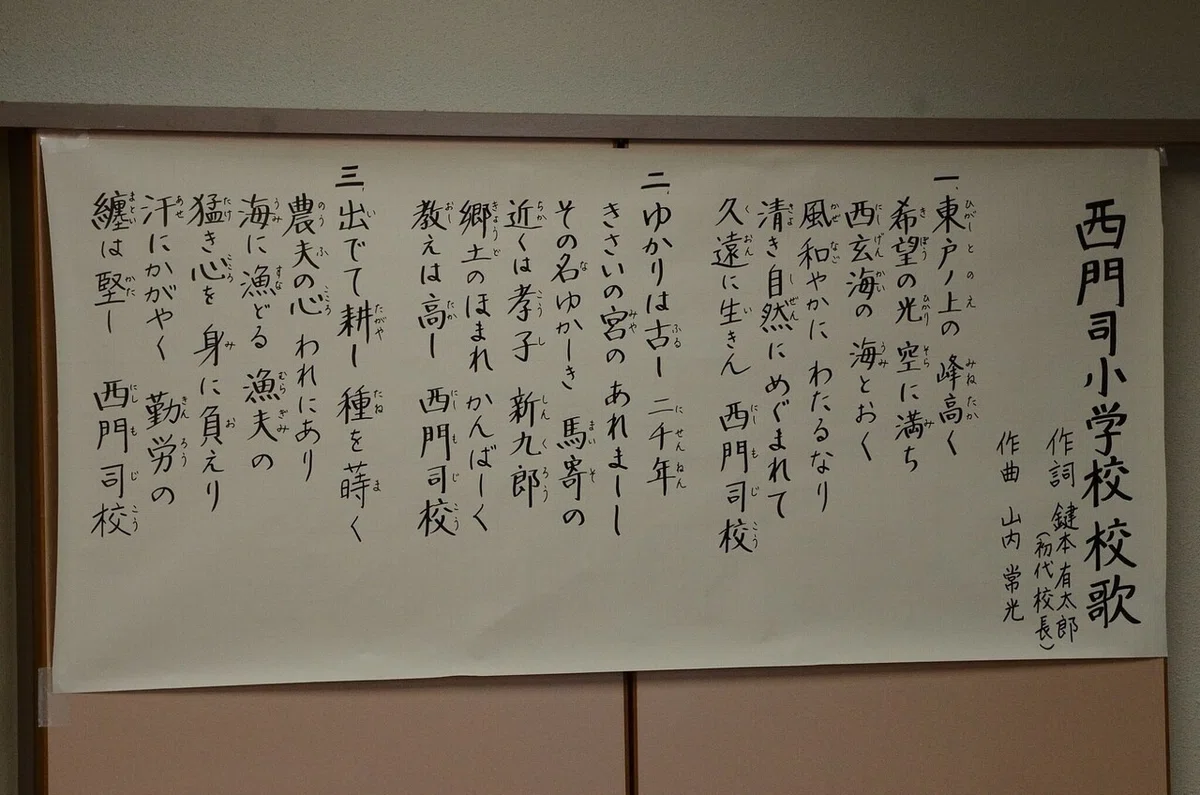 西門司小学校校歌
作詞 鍵本有太郎
(初代校長)
作曲 山内常光
一、東戸ノ上の 峰高く
希望の光 空に満ち
西玄海の 海とおく
風和やかに わたるなり
清き自然に めぐまれて
久遠に生きん 西門司校
二、ゆかりは古し 二千年
きさいの宮の あれましし
その名ゆかしき 馬寄の
近くは孝子 新九郎
郷土のほまれ かんばしく
教えは高し 西門司校
三、出でて耕し 種を蒔く
農夫の心 われにあり
海に漁どる 漁夫の
猛き心を 身に負えり
汗にかがやく 勤労の
纏は堅し 西門司校